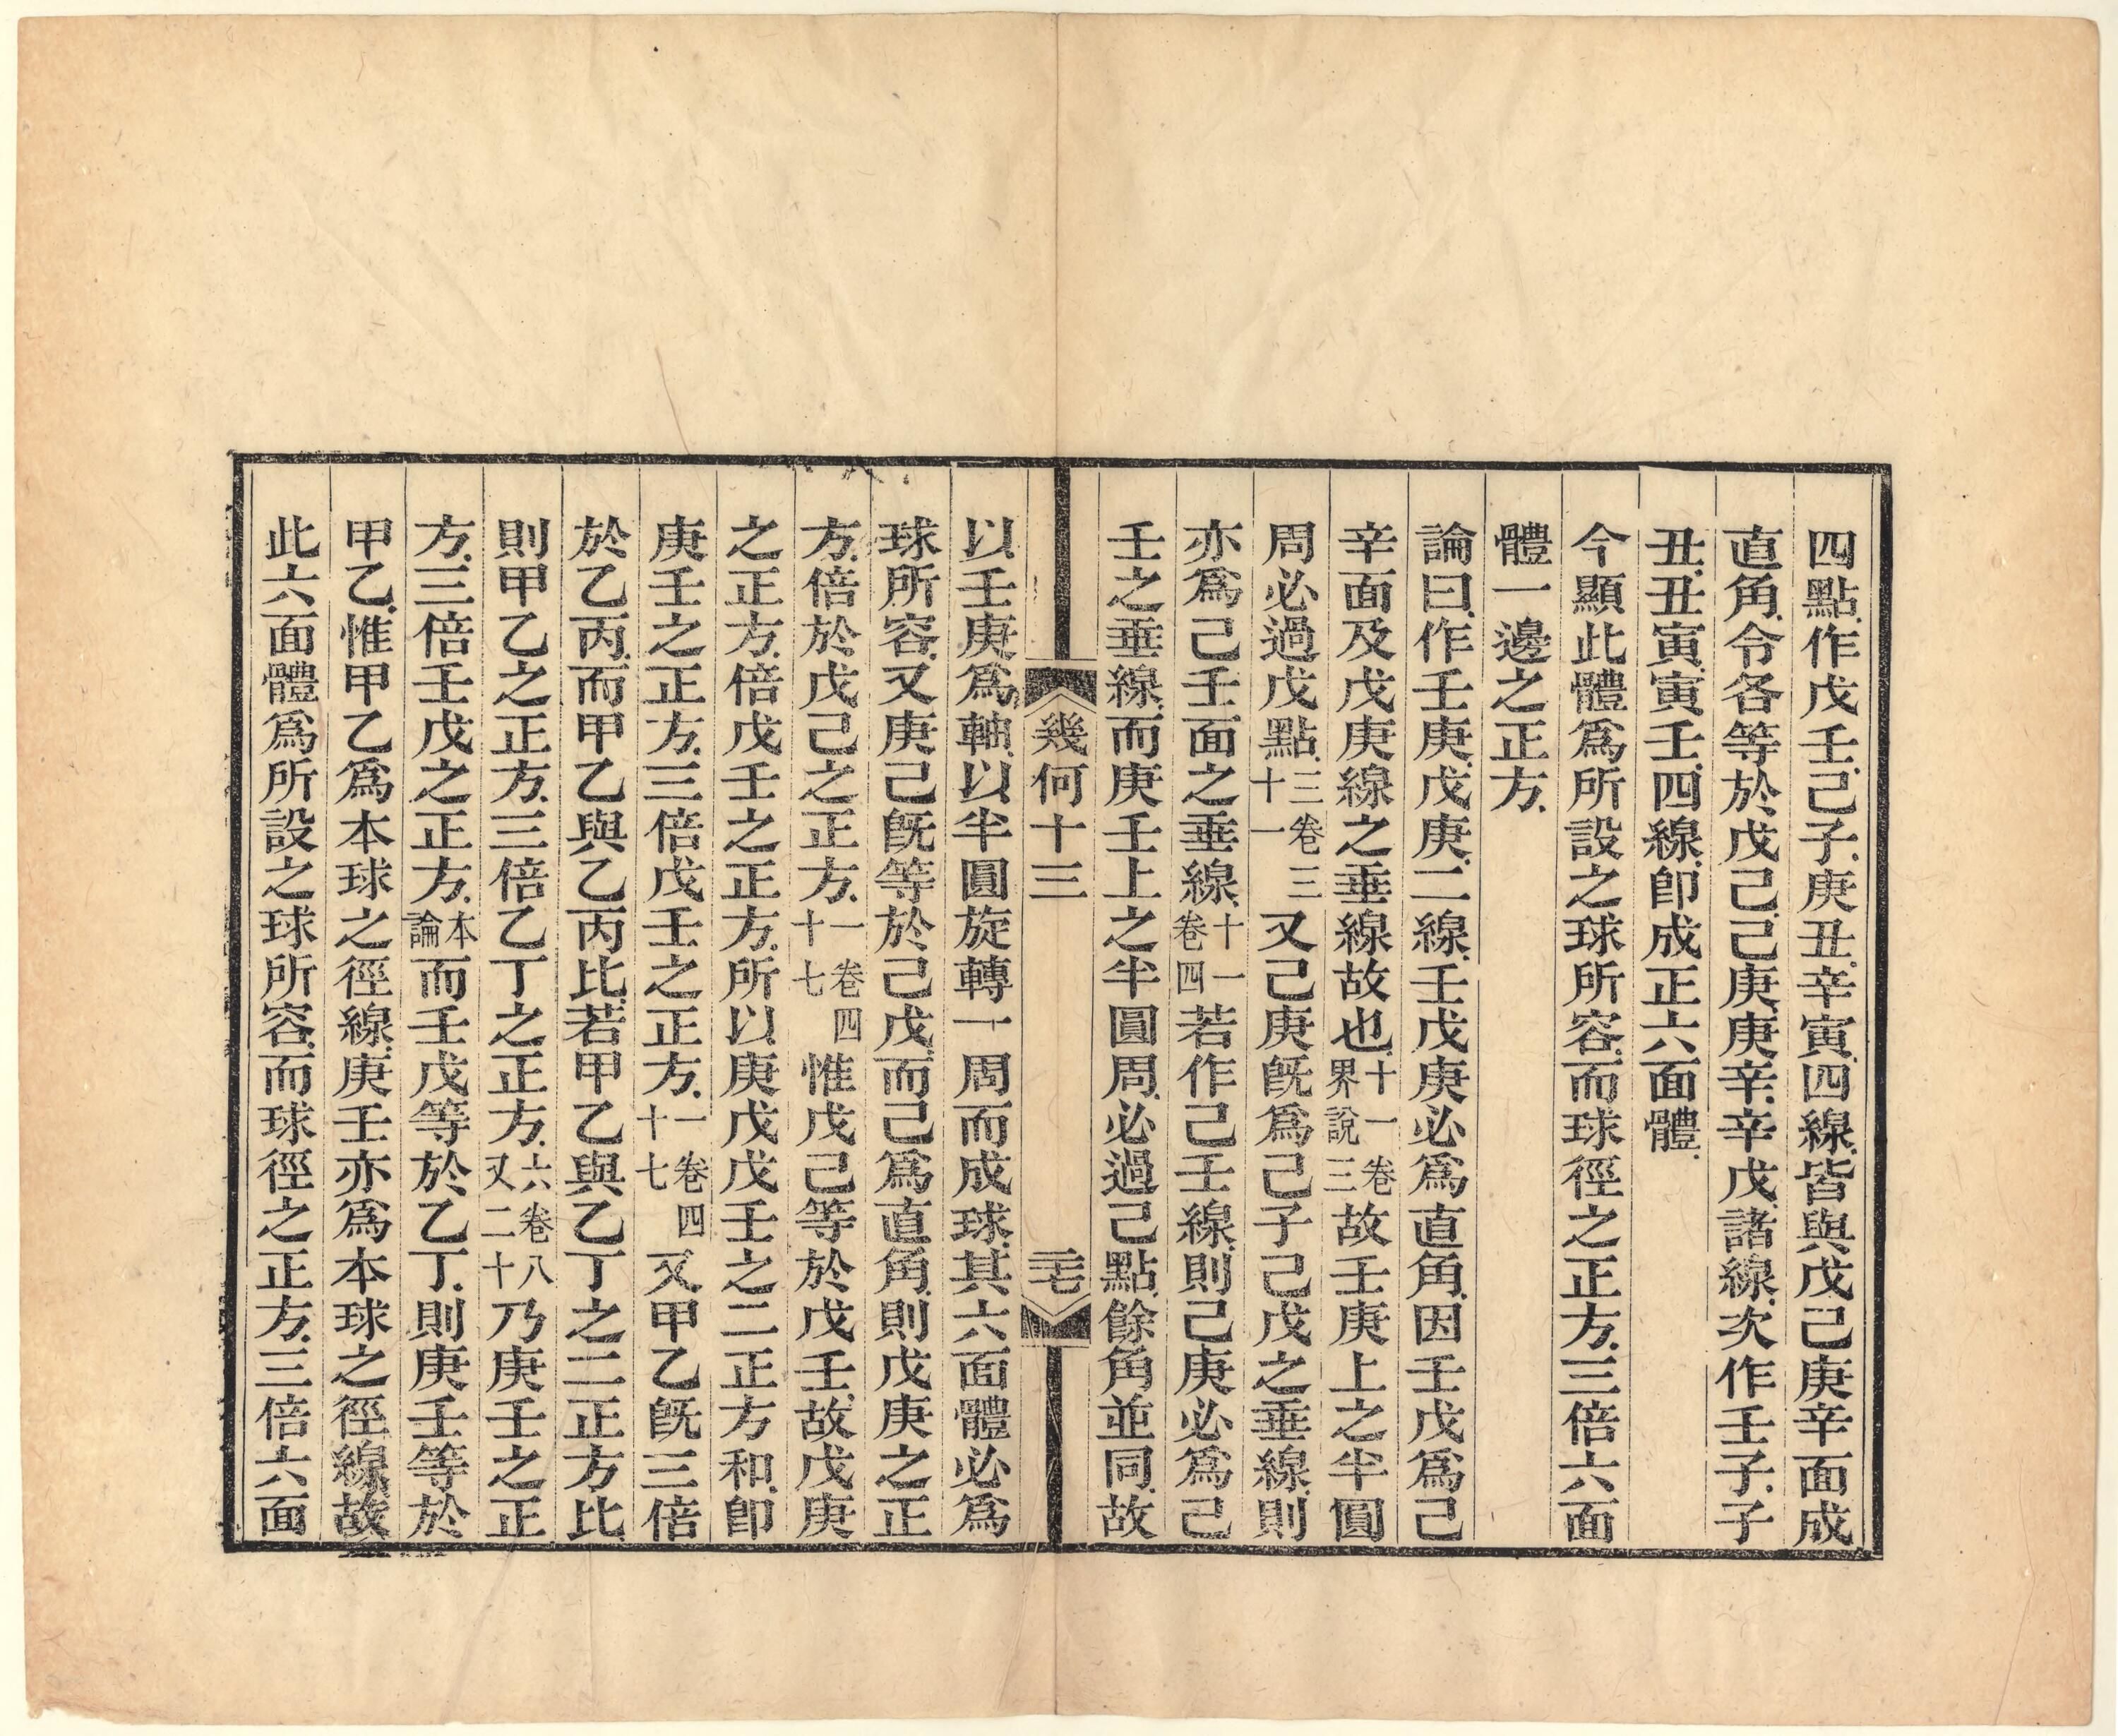 四點.作戊壬.己子.庚丑.辛寅.四線.皆與戊己庚辛面成
直角.令各等於戊己.己庚.庚辛.辛戊.諸線.次作壬子.子
丑.丑寅.寅壬.四線.卽成正六面體.
今顯此體爲所設之球所容.而球徑之正方.三倍六面
體一邊之正方.
論曰.作壬庚.戊庚.二線.壬戊庚必爲直角.因壬戊爲己
辛面及戊庚線之垂線故也.十一卷界說三故壬庚上之半圓
周必過戊點.三卷三十一又己庚旣爲己子己戊之垂線.則
亦爲己壬面之垂線.十一卷四若作己壬線.則己庚必爲己
壬之垂線.而庚壬上之半圓周.必過己點.餘角並同.故
幾何十三
三七
以壬庚爲軸.以半圓旋轉一周而成球.其六面體必爲
球所容.又庚己旣等於己戊.而己爲直角.則戊庚之正
方.倍於戊己之正方.一卷四十七惟戊己等於戊壬.故戊庚
之正方.倍戊壬之正方.所以庚戊戊壬之二正方和.卽
庚壬之正方.三倍戊壬之正方.一卷四十七又甲乙旣三倍
於乙丙.而甲乙與乙丙比.若甲乙與乙丁之二正方比.
則甲乙之正方.三倍乙丁之正方.六卷八又二十乃庚壬之正
方.三倍壬戊之正方.本論而壬戊等於乙丁.則庚壬等於
甲乙.惟甲乙爲本球之徑線.庚壬亦爲本球之徑線.故
此六面體爲所設之球所容.而球徑之正方.三倍六面